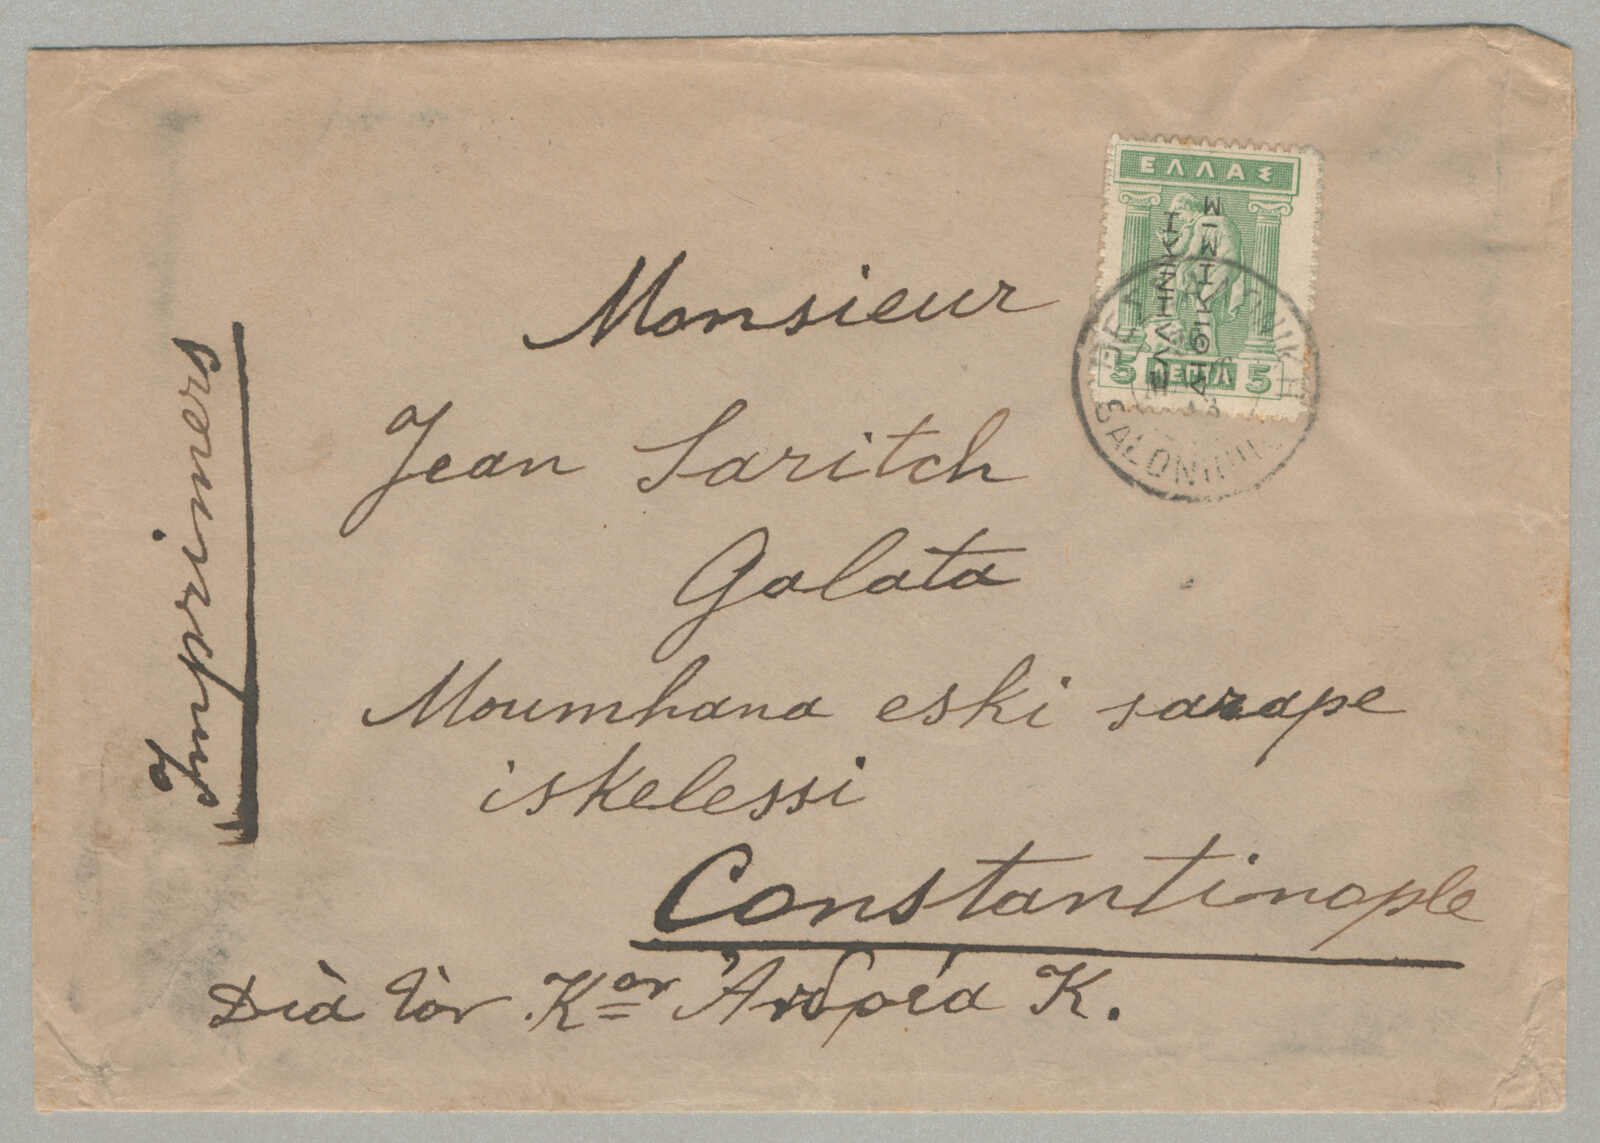 ΕΛΛΑΣ
ΕΛΛΗΝΙΚΗ
ΔΙΟΙΚΗΣΙΣ
5 ΛΕΠΤΑ 5
SALONIQUE
Imprimers
Monsieur
Jean Saritch
Galata
Moumhana eski sarape
iskelessi
Constantinople
Διὰ τὸν Κον Ἀνδρέα Κ.